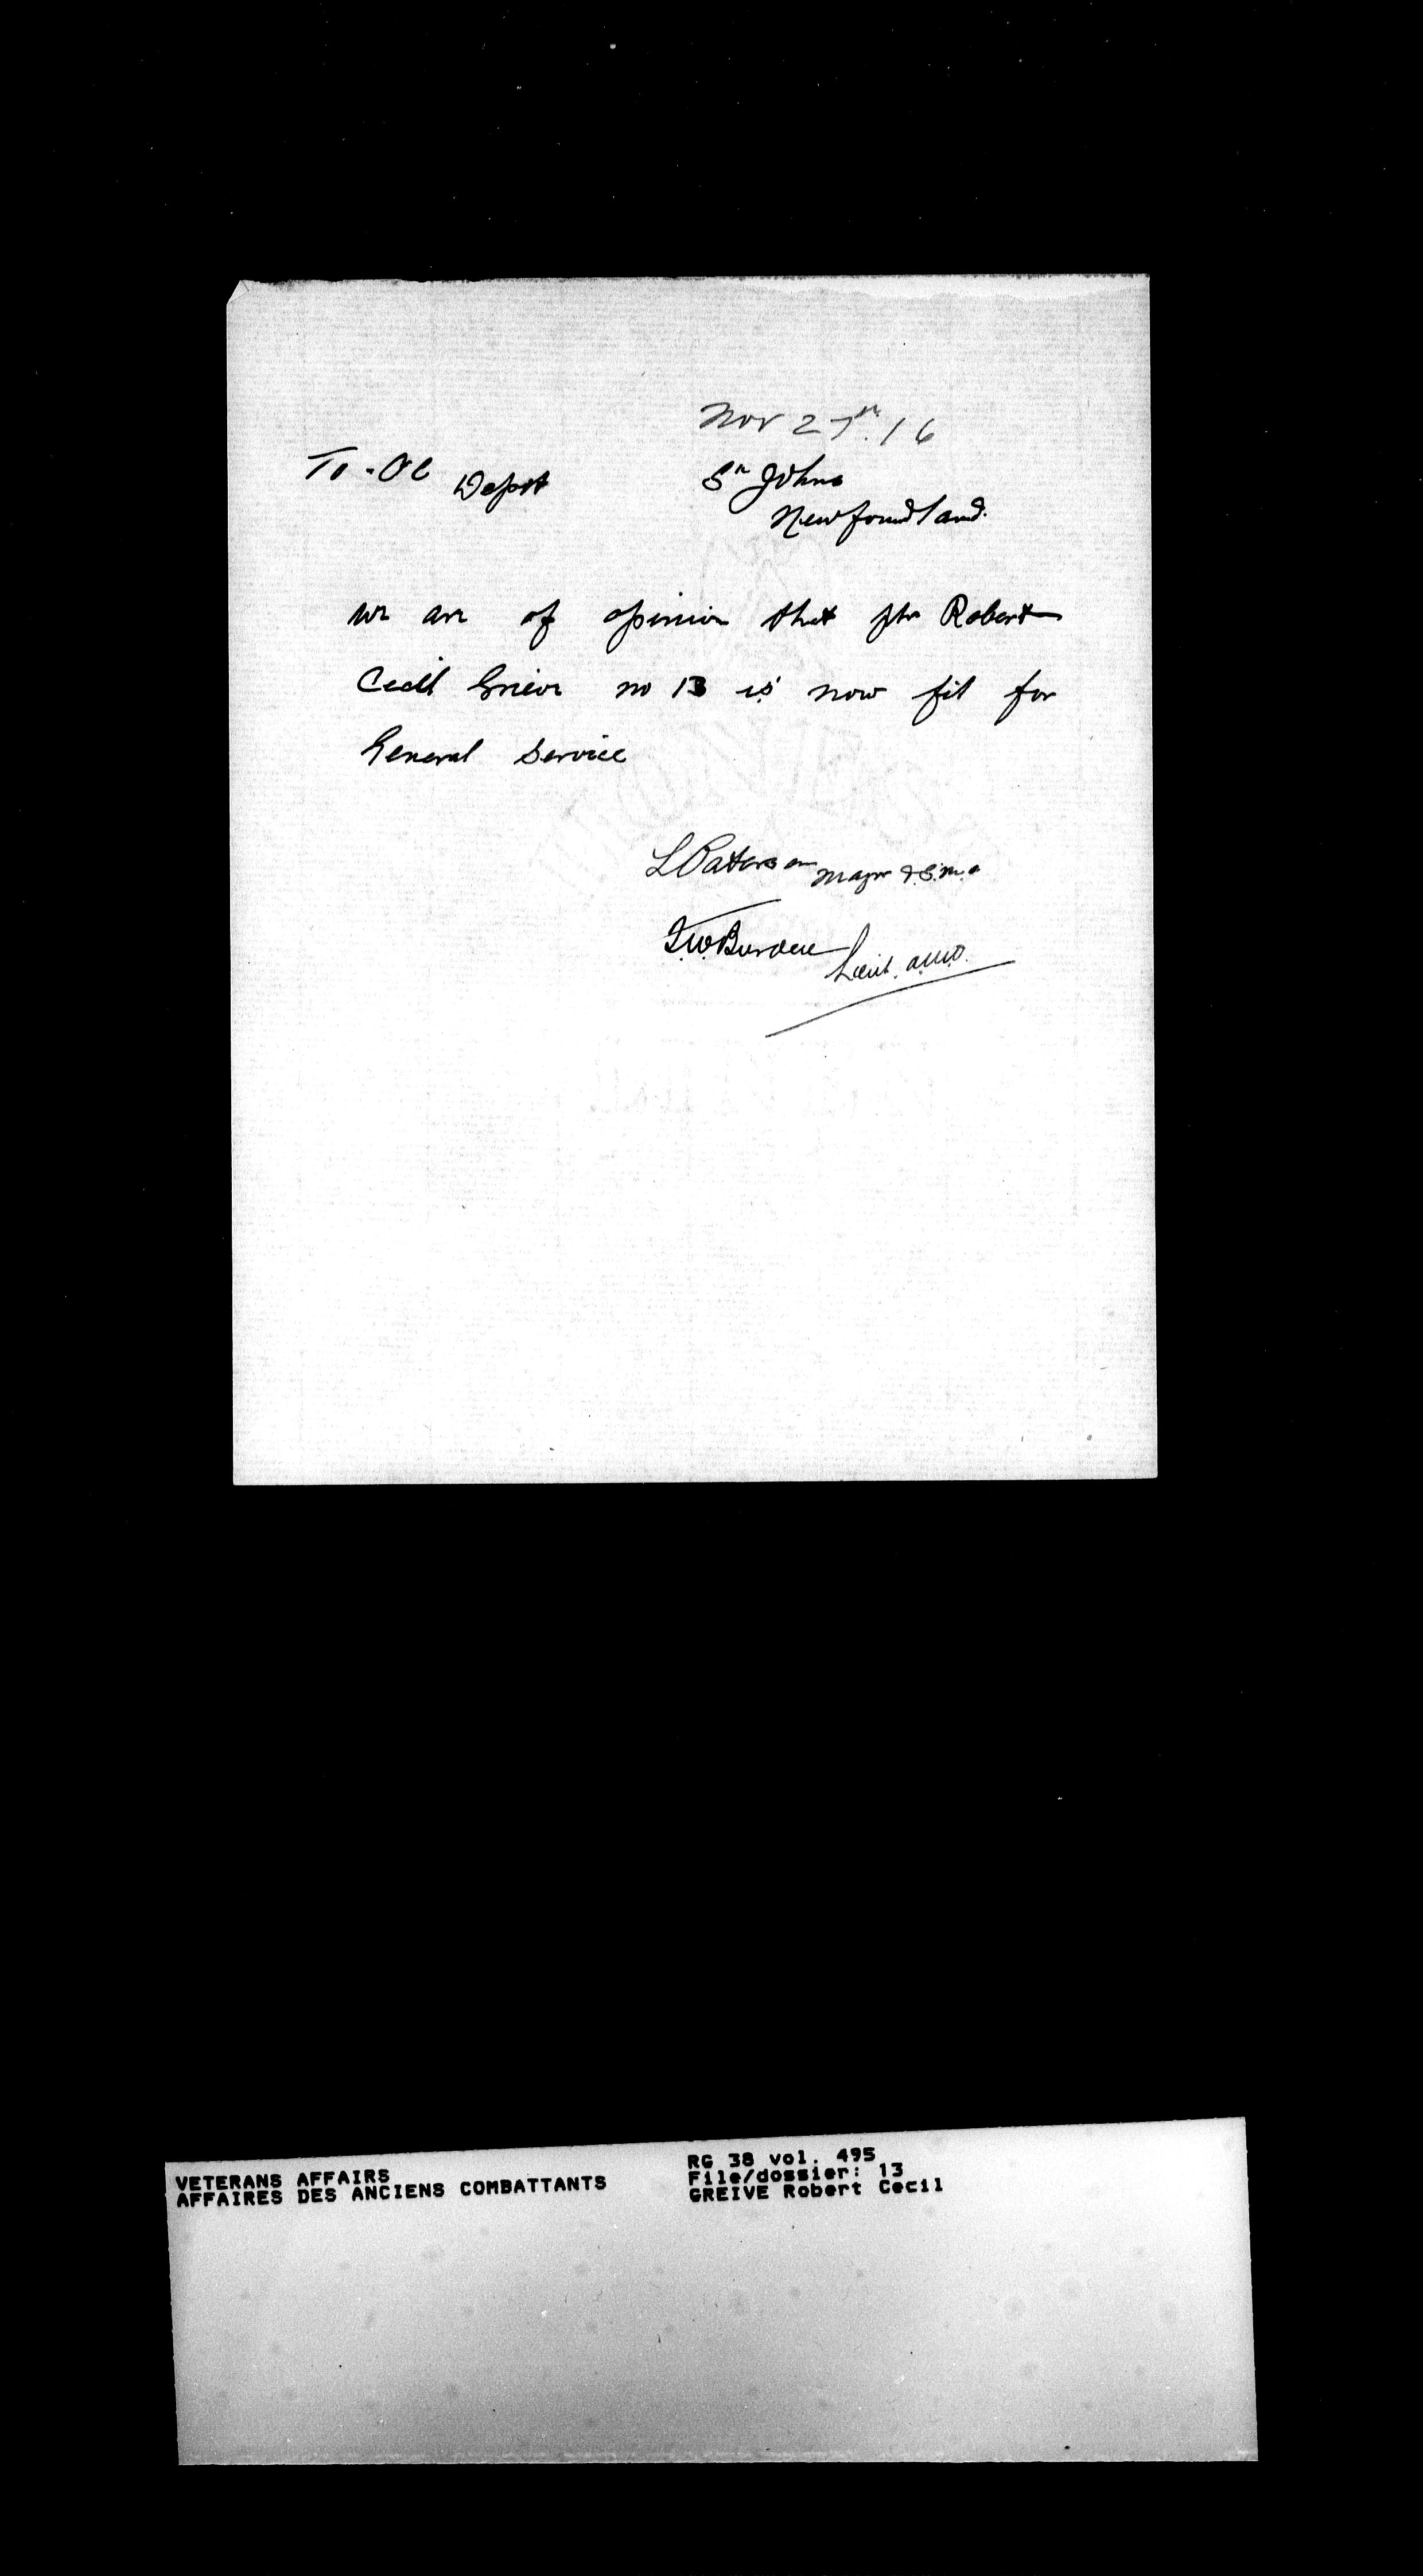 Nov 27th. 16
To - OC Depot
St Johns
Newfoundland.
we are of opinion that pte Robert
Cecil Grieve no 13 is now fit for
General Service
L Paterson Major
F.W. Burden Lieut. a.m.o.
VETERANS AFFAIRS
AFFAIRES DES ANCIENS COMBATTANTS
RG 38 vol. 495
File/dossier: 13
GREIVE Robert Cecil